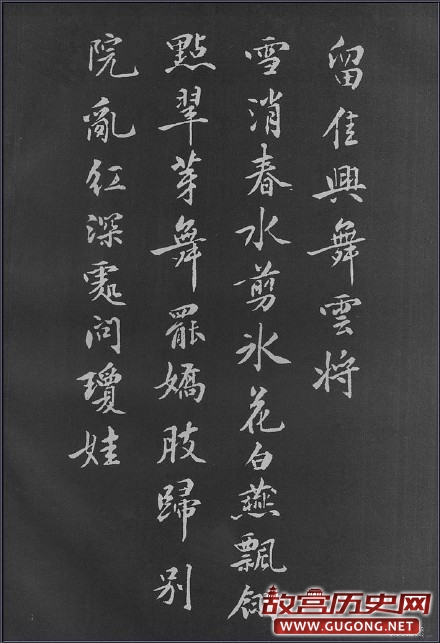 留佳興舞雲将
雪消春水剪冰花白燕飄
點翠芽舞罷嬌肢歸别
院亂紅深處问瓊娃
故宫历史网
WWW.GUGONG.NET